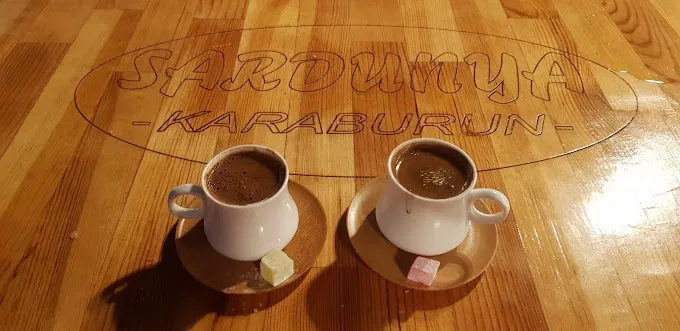 SARDUNYA
-KARABURUN-